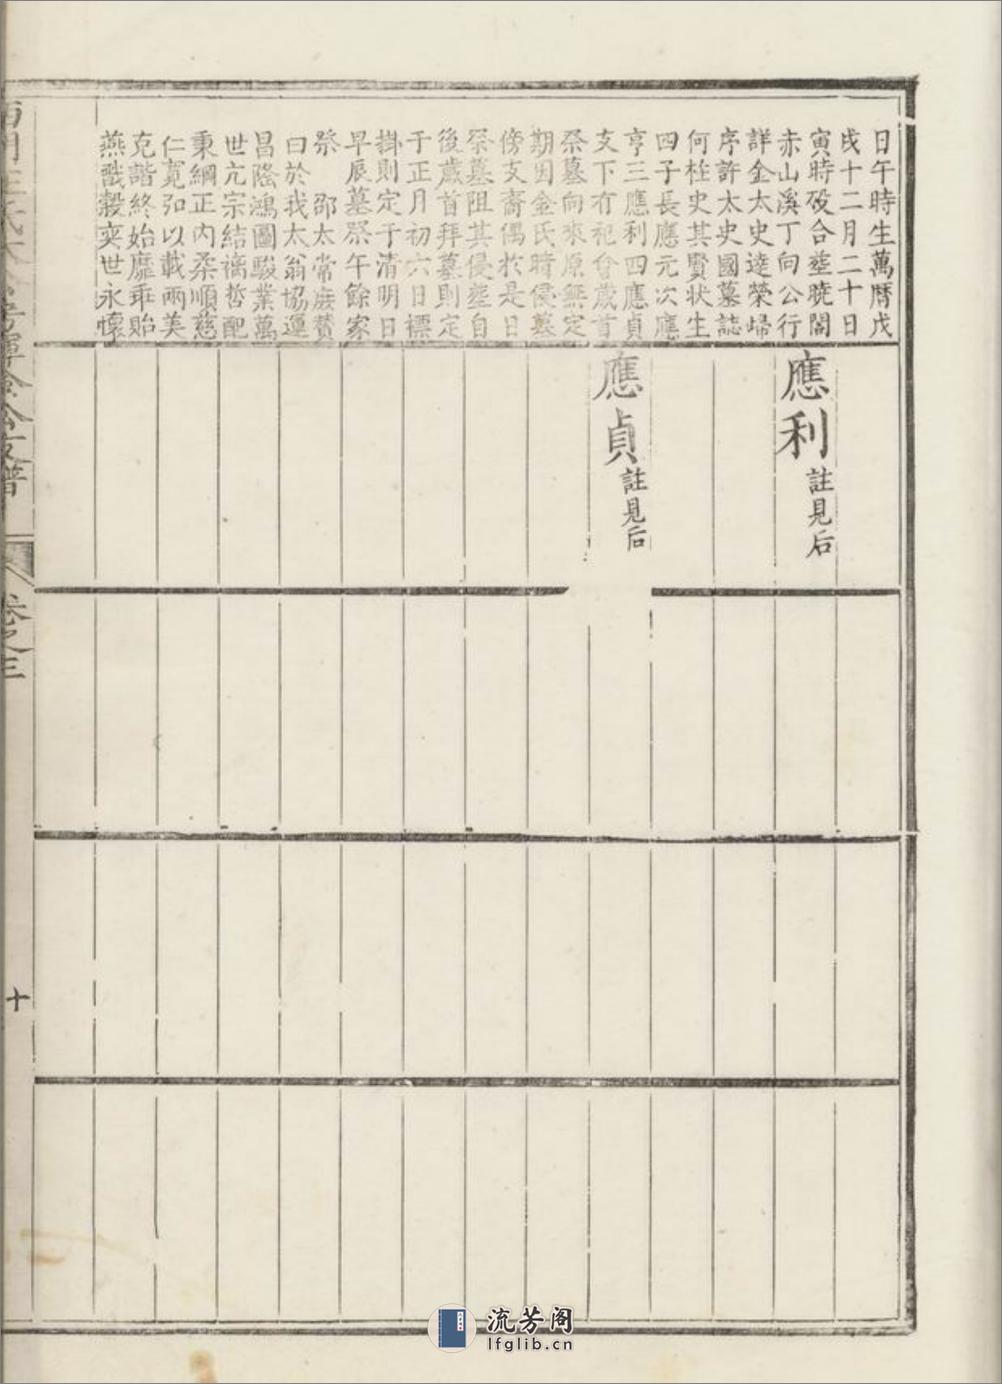 日午時生萬曆戊
戌十二月二十日
寅時歿合塟曉閣
赤山溪丁向公行
詳金太史達榮婦
序許太史國墓誌
何柱史其賢状生
四子長應元次應
亨三應利四應貞
支下有祀會歲首
祭墓向來原無定
期因金氏時侵墓
傍支裔偶於是日
祭墓阻其侵塟自
後歲首拜墓則定
于正月初六日標
掛則定于清明日
早辰墓祭午餘家
祭 邵太常庶贊
曰於我太翁協運
昌隆鴻圖駿業萬
世亢宗結褵哲配
秉綱正內柔順慈
仁寬弘以載兩美
克諧終始靡乖貽
燕戩穀奕世永懷
應利註見后
應貞註見后
卷之三
十
流芳阁
lfglib.cn